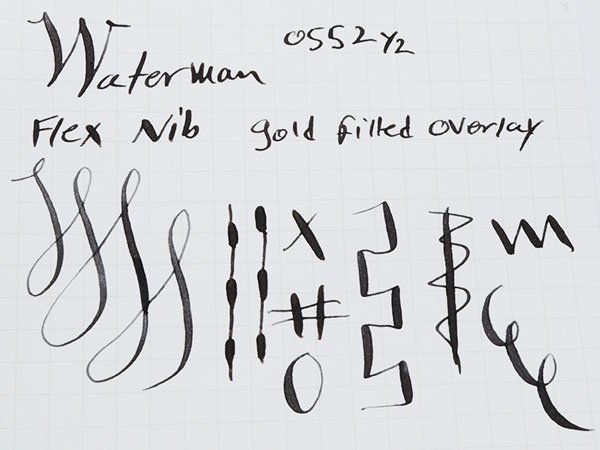 Waterman 0552½
Flex Nib gold filled overlay